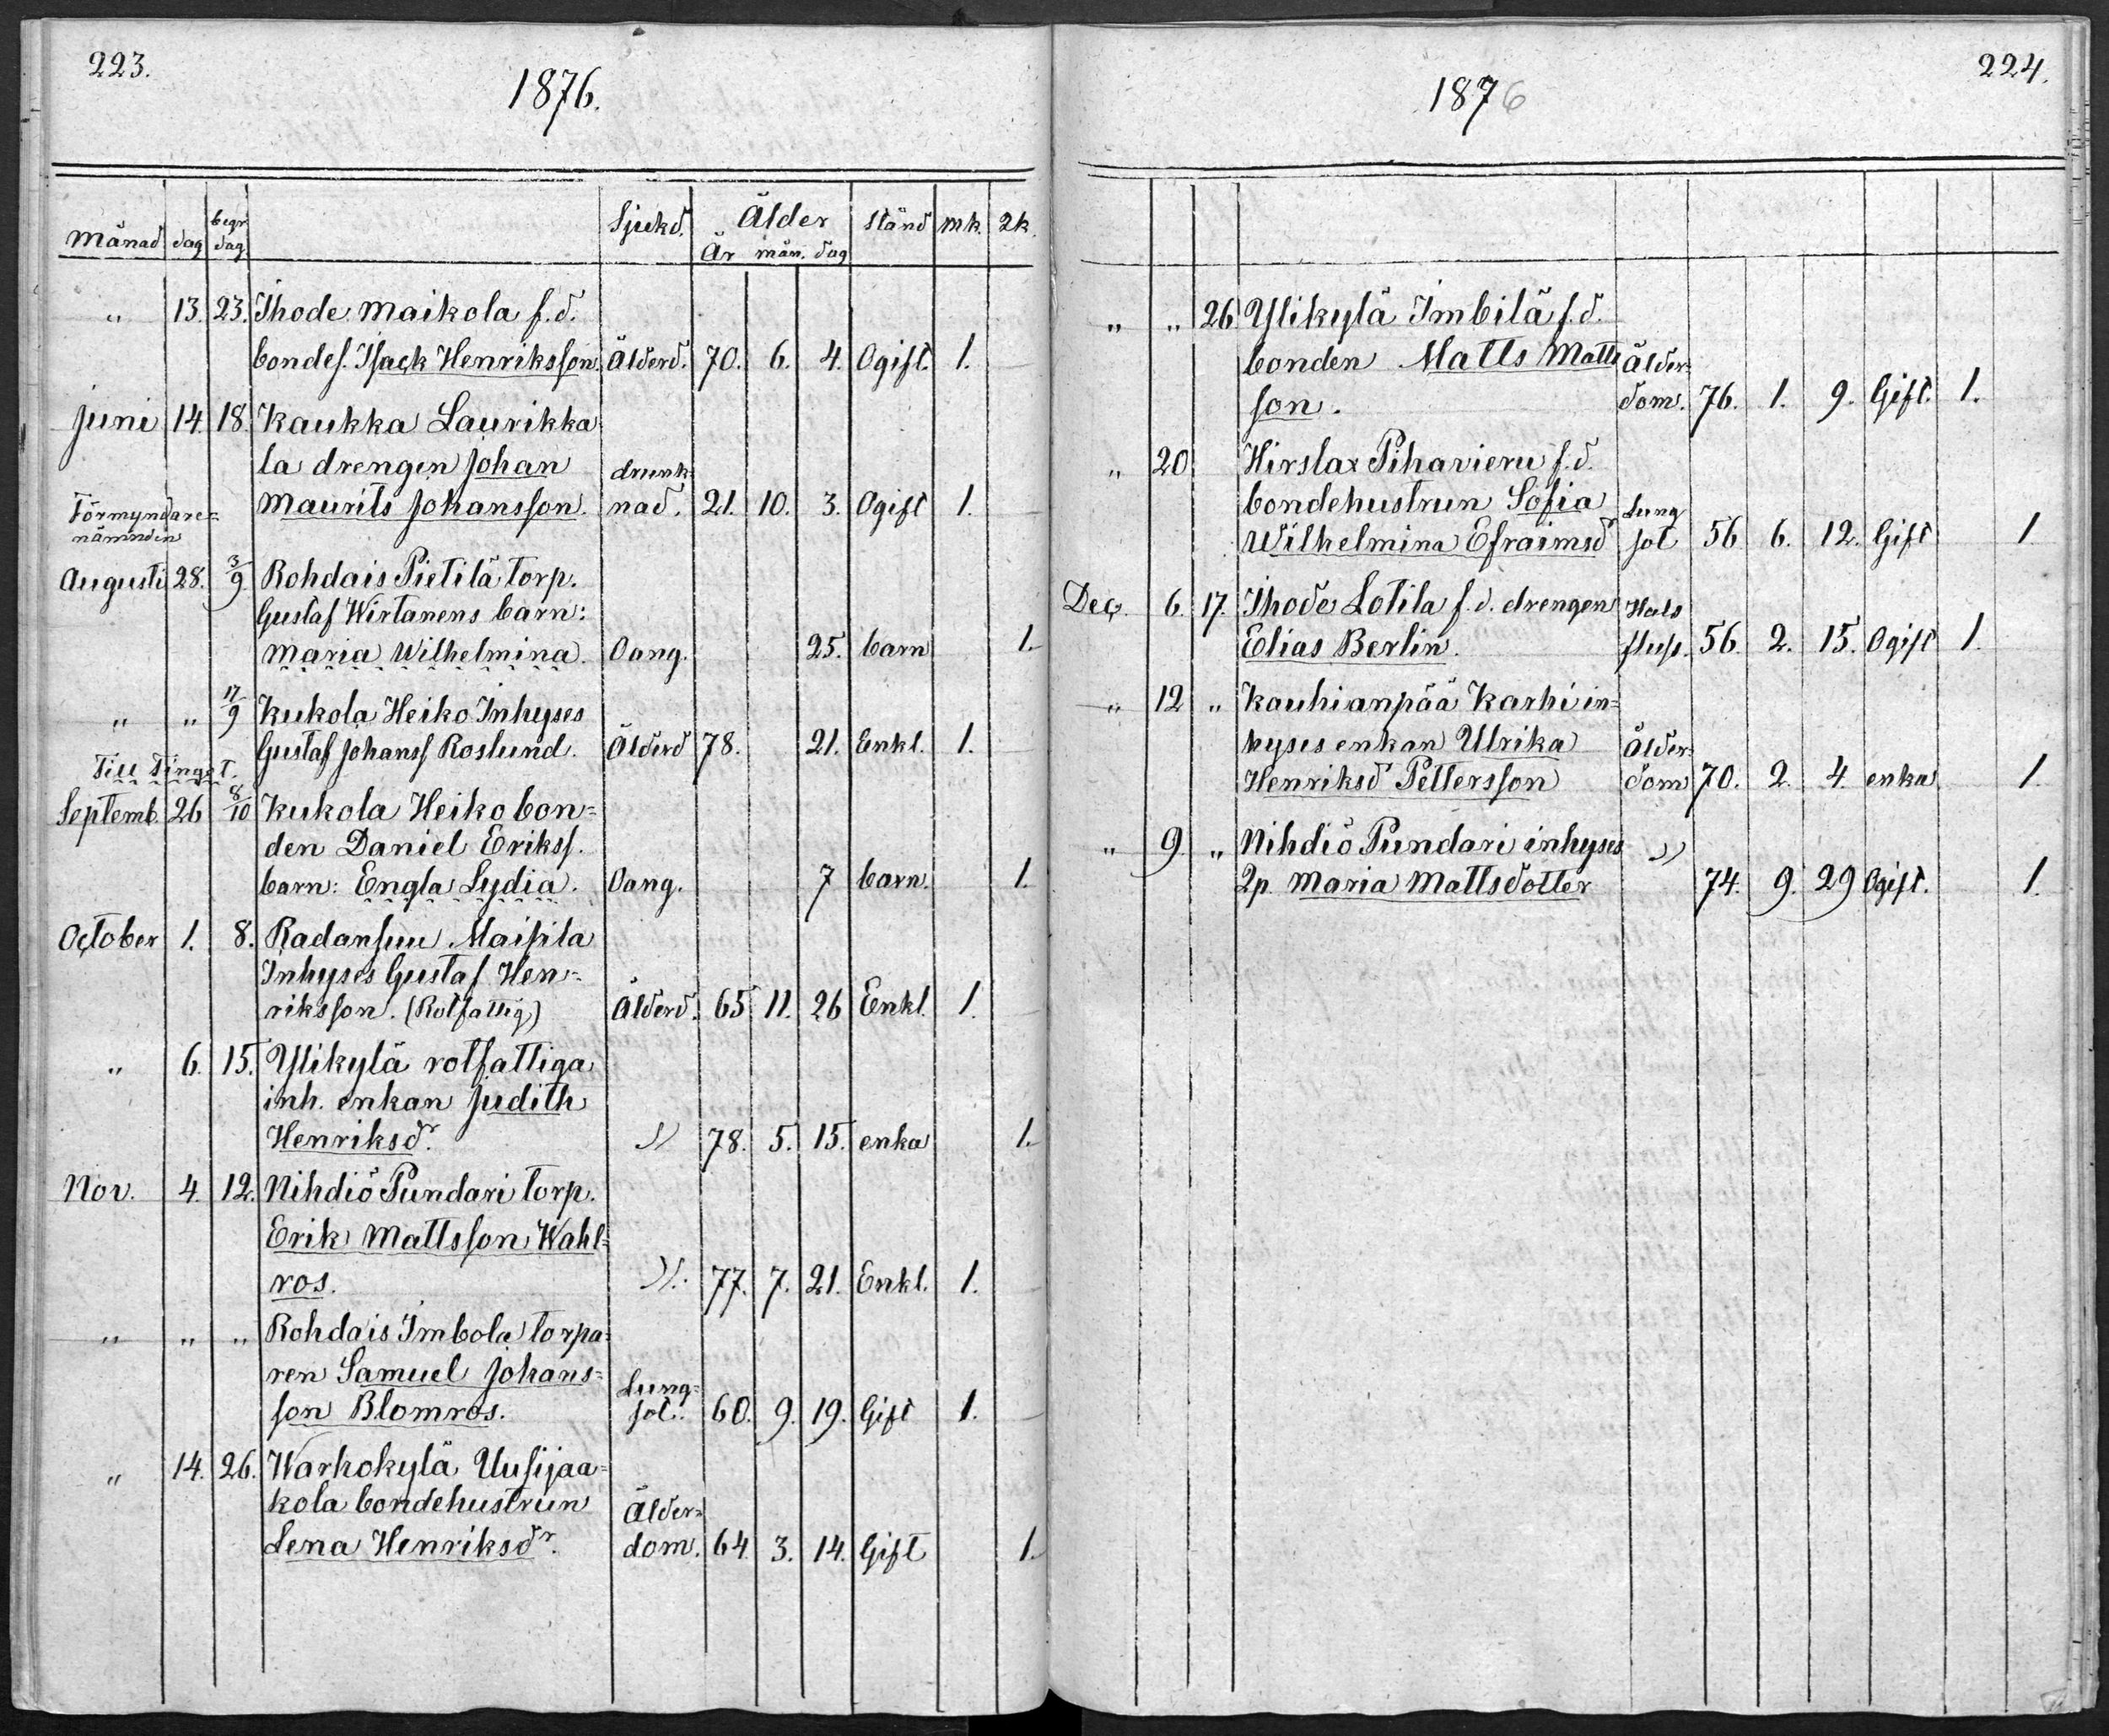 223.
1876.
Månad dag begr dag Sjukd. Ålder År mån. dag Stånd mk. qk.
" 13. 23. Ihode Maikola f.d.
bondes. Isack Henriksson. Ålderd. 70. 6. 4. Ogift. 1.
Juni 14. 18. Kaukka Laurikka
la drengen Johan drunk-
Maurits Johansson. nad. 21. 10. 3. Ogift 1.
Förmyndare=
nämnden
Augusti 28. 3/9. Rohdais Pietilä torp.
Gustaf Wirtanens barn:
Maria Wilhelmina. Oang. 25. barn 1.
" " 17/9 Kukola Heiko Inhyses
Gustaf Johanss Roslund. Ålderd 78. 21. Enkl. 1.
Till Tinget.
Septemb. 26 8/10 Kukola Heiko bon=
den Daniel Erikss.
barn: Engla Lydia. Oang. 7 barn. 1.
October 1. 8. Radansuu Maisila
Inhyses Gustaf Hen=
riksson. (Rotfattig) Ålderd. 65 11. 26 Enkl. 1.
" 6. 15. Ylikylä rotfattiga
inh. enkan Judith
Henriksdr. " 78. 5. 15. enka 1.
Nov. 4. 12. Nihdiö Pundari torp.
Erik Mattsson Wahl=
ros. ". 77. 7. 21. Enkl. 1.
" " " Rohdais Imbola torpa=
ren Samuel Johans= Lung=
son Blomros. sot. 60. 9. 19. Gift 1.
" 14. 26. Warhokylä Uusijaa=
kola bondehustrun Ålder=
Lena Henriksdr. dom. 64 3. 14. Gift 1.
224.
1876
" " 26 Ylikylä Imbilä f.d.
bonden Matts Matts Ålder=
son. dom. 76. 1. 9. Gift. 1.
" 20. Hirslax Pihavieru f.d.
bondehustrun Sofia Lung
Wilhelmina Efraimsd sot 56 6. 12. Gift 1
Dec. 6. 17. Ihode Lotila f.d. drengen Hals
Elias Berlin. flus. 56. 2. 15. Ogift 1.
" 12 " Kauhianpää Karhi in=
hyses enkan Ulrika Ålder=
Henriksd Pettersson dom 70. 2. 4. enka 1.
" 9. " Nihdiö Pundari inhyses "
qp. Maria Mattsdotter 74. 9. 29 Ogift. 1.